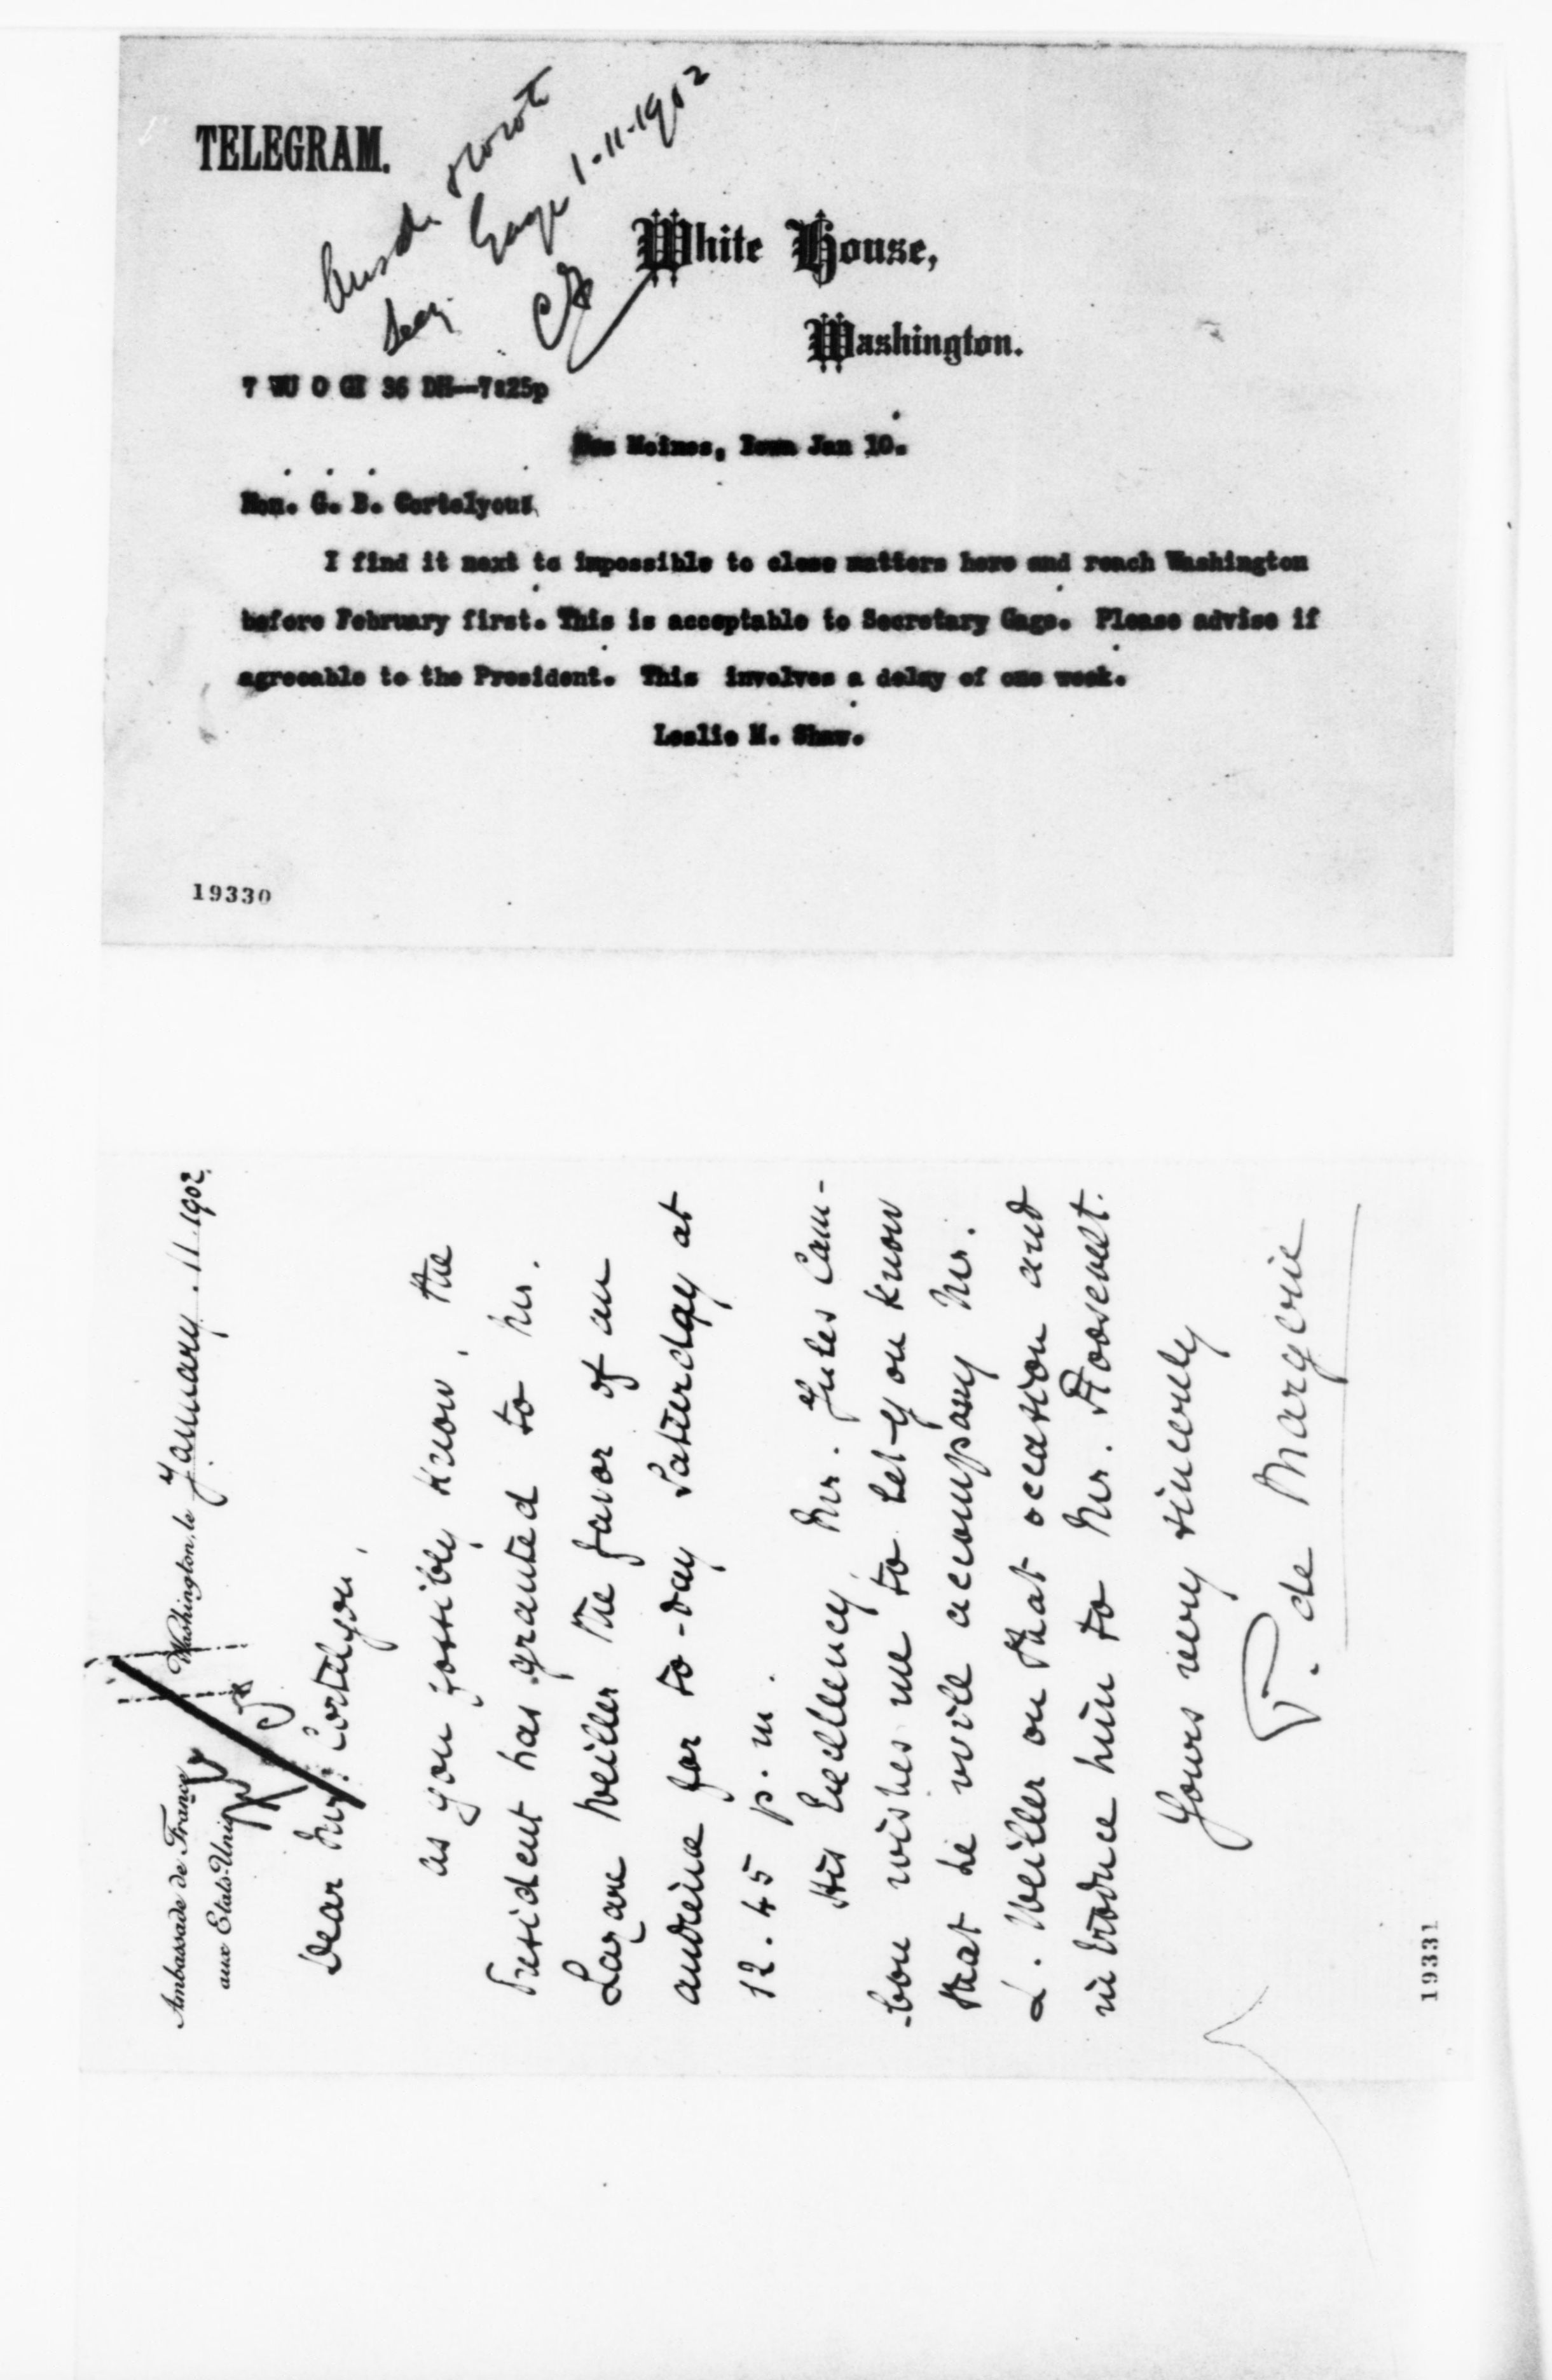 TELEGRAM.
wrote
Secy. Gage 1-11-1902
White House,
Washington.
7 WU O GI 36 DH--7:25p
Des Moines, Iowa Jan 10.
Hon. G. B. Cortelyou:
I find it next to impossible to close matters here and reach Washington
before February first. This is acceptable to Secretary Gage. Please advise if
agreeable to the President. This involves a delay of one week.
Leslie M. Shaw.
19330
Ambassade de France
aux Etats-Unis
Washington, le January . 11 . 1902.
Dear Mr. Cortelyou,
as you possibly know, the
President has granted to Mr.
Lazare Weiller the favor of an
audience for to-day Saturday at
12.45 p.m.
His Excellency Mr. Jules Cam-
-bon wishes me to let you know
that he will accompany Mr.
L. Weiller on that occasion and
introduce him to Mr. Roosevelt.
Yours very sincerely
P. de Margerie
19331